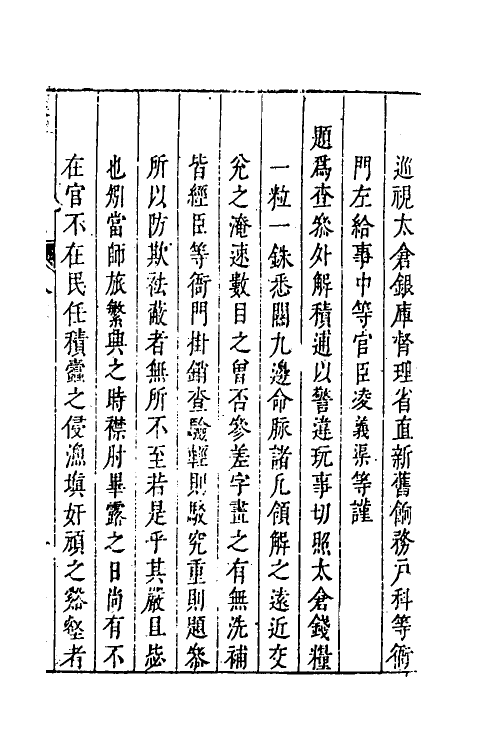 巡視太倉銀庫督理省直新舊餉務戶科等衙
門左給事中等官臣凌義渠等謹
題爲查叅外解積逋以警違玩事切照太倉錢糧
一粒一銖悉關九邊命脈諸凡領解之遠近交
兊之淹速數目之曾否參差字畫之有無洗補
皆經臣等衙門掛銷查驗輕則駁究重則題叅
所以防欺袪蔽者無所不至若是乎其嚴且毖
也矧當師旅繁興之時襟肘畢露之日尚有不
在官不在民任積蠹之侵漁塡奸頑之谿壑者